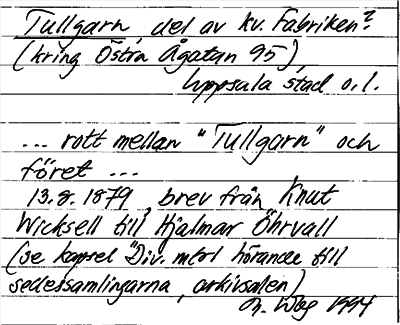 Tullgarn, del av kv. Fabriken?
(kring Östra Ågatan 95)
Uppsala stad o.l.
... rott mellan "Tullgarn" och
föret ...
13.8. 1879, brev från Knut
Wicksell till Hjalmar Öhrvall
(se kapsel "Div. mtrl hörande till
sedessamlingarna, arkivsalen)
1994